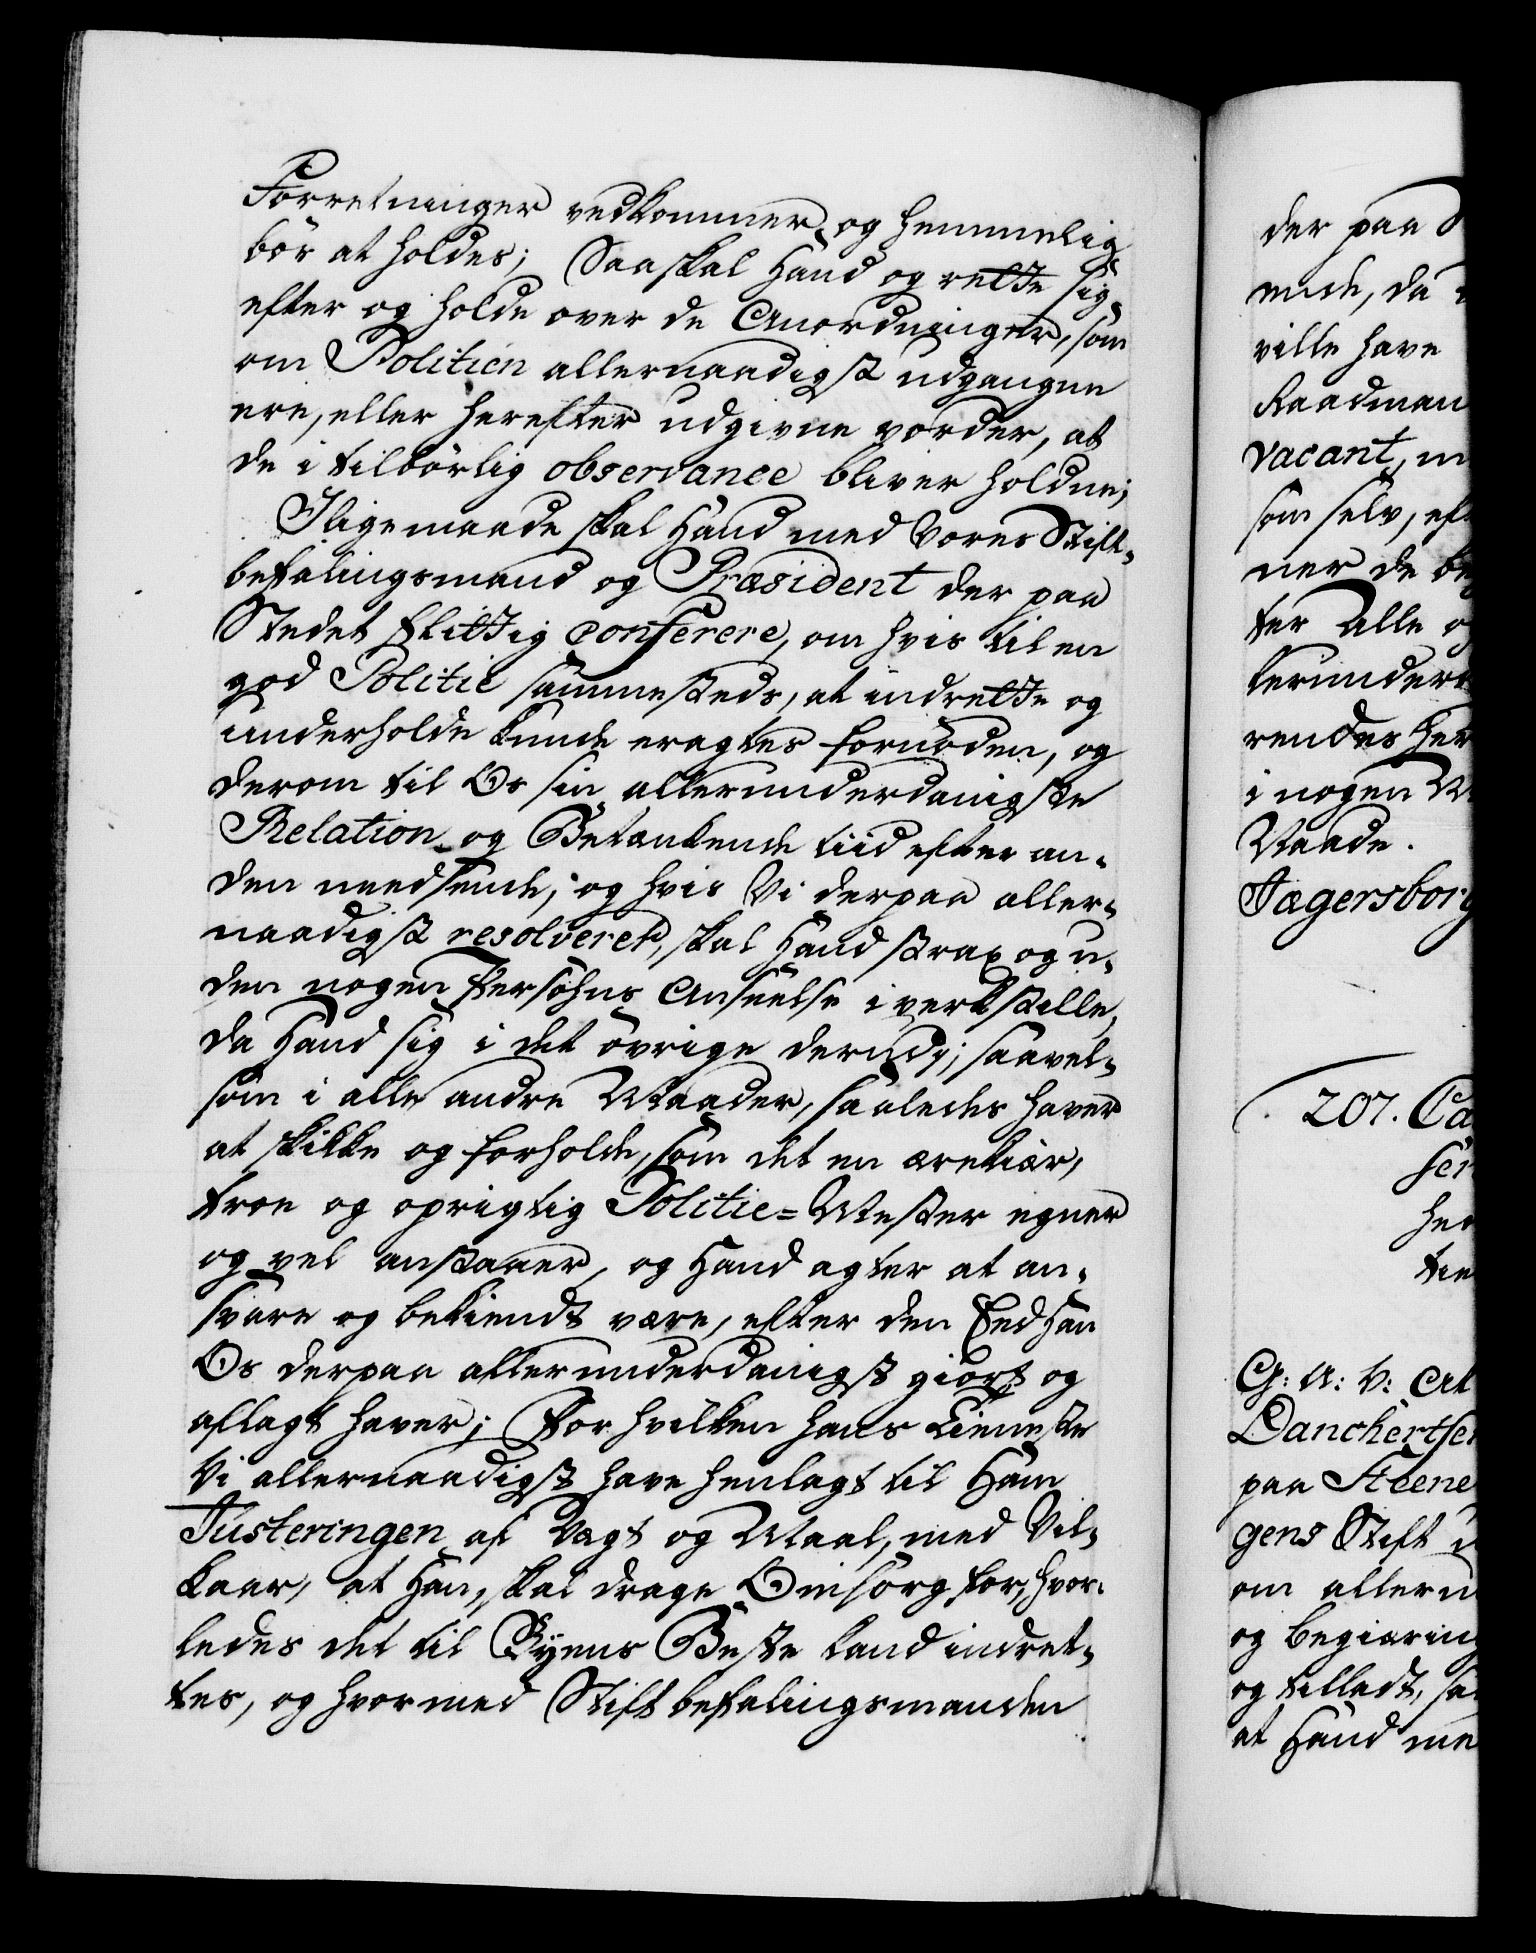 Forretninger vedkommer, og hemmelig
bör at holdes; Saa skal Hand og rette sig
efter og holde over de Anordninger, som
om Politien allernaadigst udgangne
ere, eller herefter udgivne vorder, at
de i tilbörlig observance bliver holdne;
Iligemaade skal Hand med Vores Stift-
befalingsmand og Præsident der paa
Stedet flittig conferere, om hvis til en
god Politie sammesteds, at indrette og
underholde kunde eragtes fornöden, og
derom til Os sin allerunderdanigste
Relation og Betænkende tiid efter an-
den nendsende; og hvis Vi derpaa aller-
naadigst resolverer, skal Hand strax og u-
den nogen Persohns Anseelse i verkstille,
da Hand sig i det övrige derudj, saavel-
som i alle andre Maader, saaledes haver
at skikke og forholde, som det en ærekiær,
troe og oprigtig Politie=Mester egner
og vel anstaaer, og Hand agter at an-
svare og bekiendt være, efter den Eed Han
Os derpaa allerunderdanigst giort og
aflagt haver; For hvilken hans Tieneste
Vi allernaadigst have henlagt til Ham
Justeringen af Vægt og Maal, med Vil-
kaar, at Han skal drage Omsorg for, hvor-
ledes det til Byens Beste kand indret-
tes, og hvormed Stiftbefalingsmanden
der paa
mede, da
ville have
Raadman
vacant, m
som selv, eft
ner de be
ter Alle o
terunder
rendes her
i nogen M
Maade.
Jægersborg
207. Ca
fer
her
tie
G: A: V: At
Danchertsen
paa Steene
gens Stift
om allern
og begiæring
og tilladt, sa
at Hand me